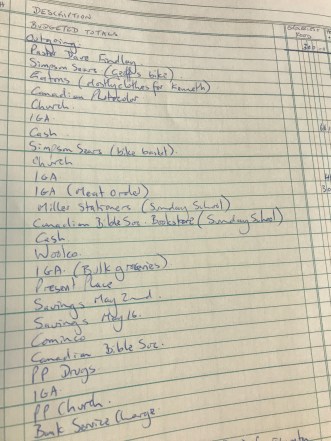 DESCRIPTION
GROCERIES
FOOD
BUDGETED TOTALS
Outgoing
Simpson Sears ( bike).
Eatons (clothes for Kenneth)
Canadian
Church.
IGA
Cash.
Simpson Sears (bike basket).
Church
IGA
IGA (Meat Order)
Miller Stationers. (Sunday School)
Canadian Bible Soc. Bookstore (Sunday School)
Cash
Woolco.
IGA. (Bulk groceries)
Present Place
Savings May 2nd.
Savings May 16.
Cominco
Canadian Bible Soc.
PP Drugs
IGA
PP Church.
Bank Service Charge